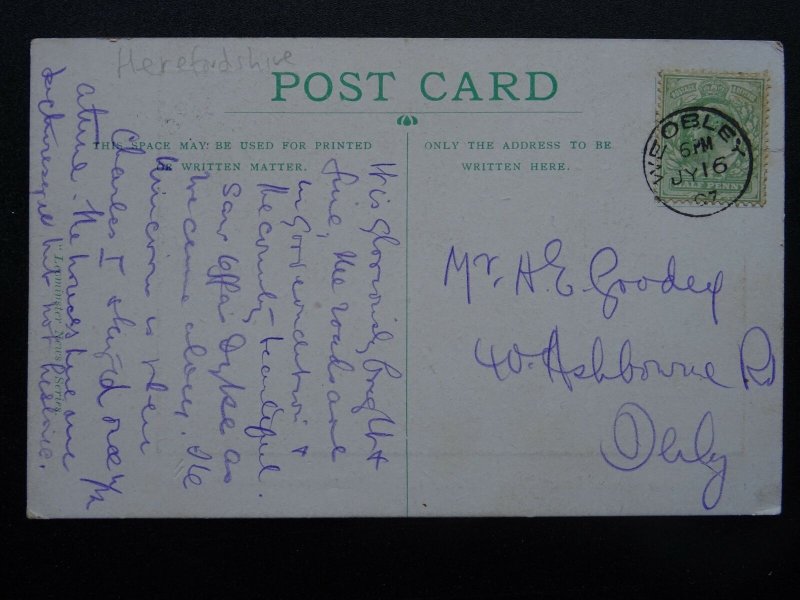 Herefordshire
POST CARD
THIS SPACE MAY BE USED FOR PRINTED
OR WRITTEN MATTER.
ONLY THE ADDRESS TO BE
WRITTEN HERE.
WEOBLEY
6 PM
JY 16
07
HALF PENNY
Mr. A. E. Goodey
40. Ashbourne Rd
Derby
It is gloriously bright &
fine, the roads are
in good condition &
the country beautiful.
Saw Offa's Dyke as
we came along. The
Unicorn is where
Charles I stayed once
The houses here are
picturesque but not historic.
Leominster News Series